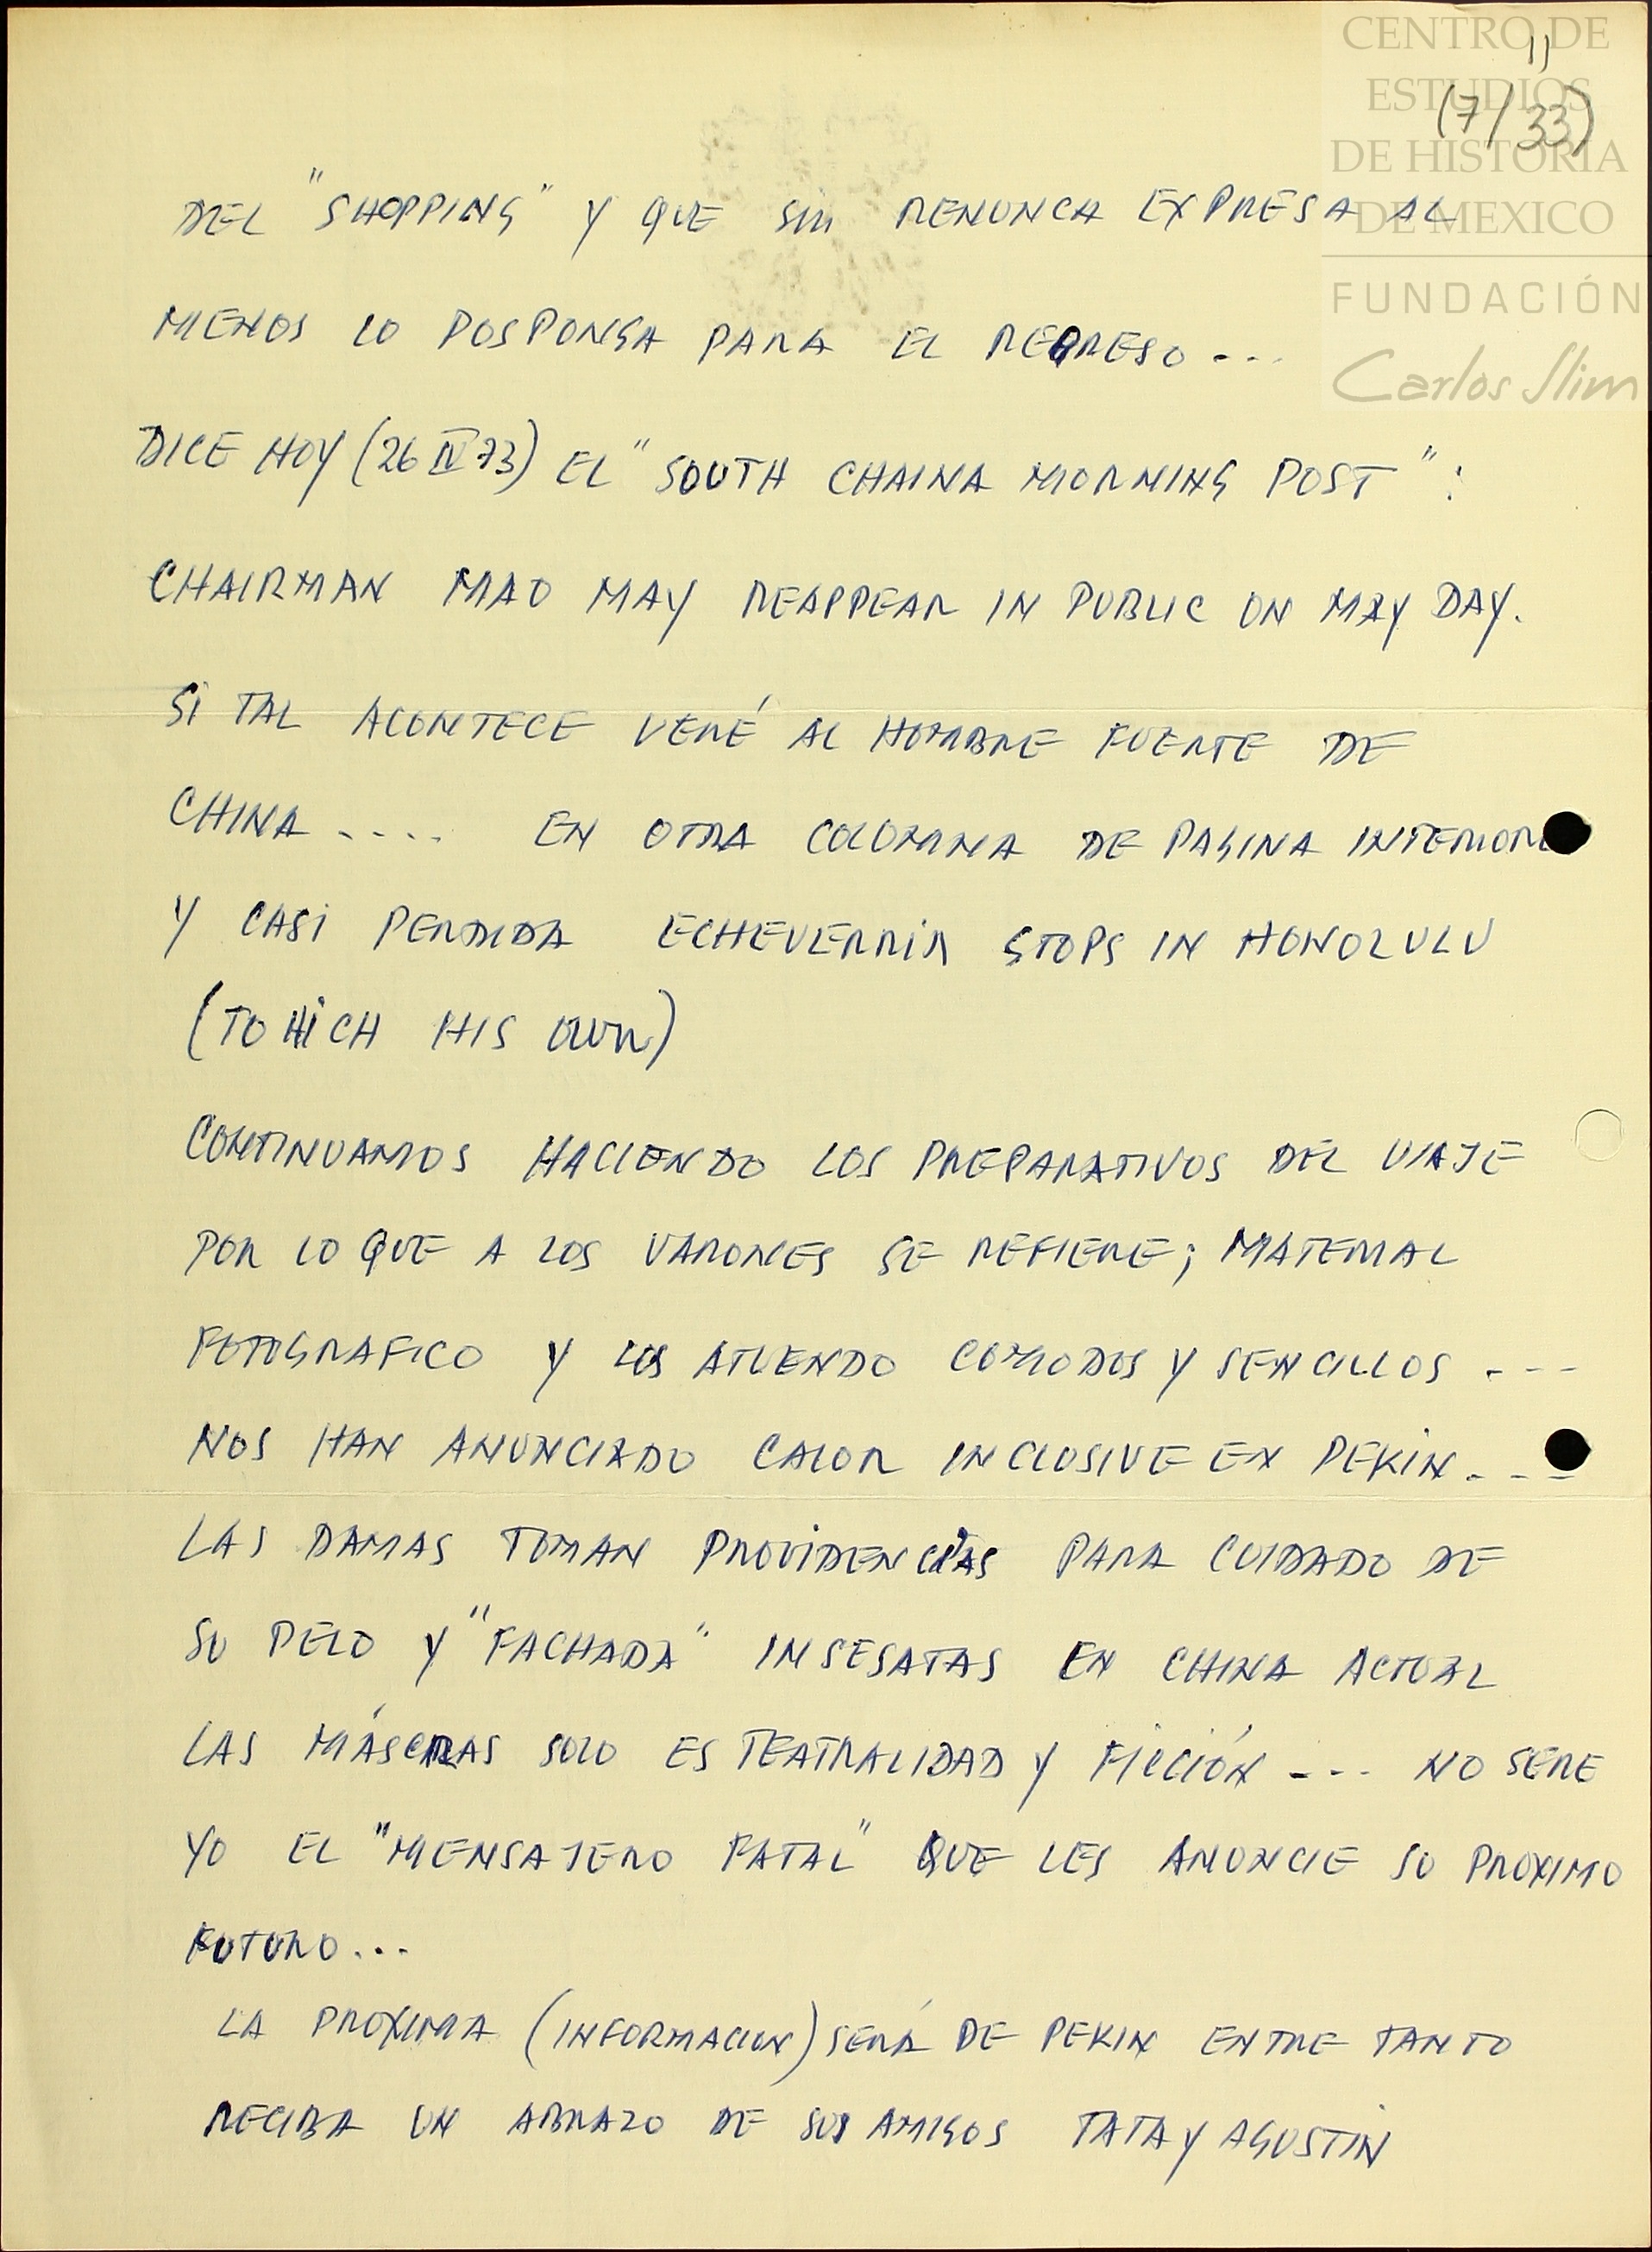 CENTRO DE
ESTUDIOS
DE HISTORIA
DE MEXICO
FUNDACIÓN
Carlos Slim
11
(7/33)
DEL "SHOPPING" Y QUE SIN RENUNCA EXPRESA AL
MENOS LO POSPONGA PARA EL REGRESO...
DICE HOY (26 IV 73) EL "SOUTH CHAINA MORNING POST":
CHAIRMAN MAO MAY REAPPEAR IN PUBLIC ON MAY DAY.
SI TAL ACONTECE VERÉ AL HOMBRE FUERTE DE
CHINA.... EN OTRA COLOMNA DE PAGINA INTERIOR
Y CASI PERDIDA ECHEVERRIA STOPS IN HONOLULU
(TO HICH HIS OWN)
CONTINUAMOS HACIENDO LOS PREPARATIVOS DEL VIAJE
POR LO QUE A LOS VARONES SE REFIERE; MATERIAL
FOTOGRAFICO Y LOS ATUENDO COMODOS Y SENCILLOS ---
NOS HAN ANUNCIADO CALOR INCLUSIVE EN PEKIN. - -
LAS DAMAS TOMAN PROVIDENCIAS PARA CUIDADO DE
SU PELO Y "FACHADA" INSESATAS EN CHINA ACTUAL
LAS MÁSCARAS SOLO ES TEATRALIDAD Y FICCIÓN --- NO SERE
YO EL "MENSAJERO FATAL" QUE LES ANUNCIE SU PROXIMO
FUTURO...
LA PROXIMA (INFORMACION) SERÁ DE PEKIN ENTRE TANTO
RECIBA UN ABRAZO DE SUS AMIGOS TATA Y AGUSTIN